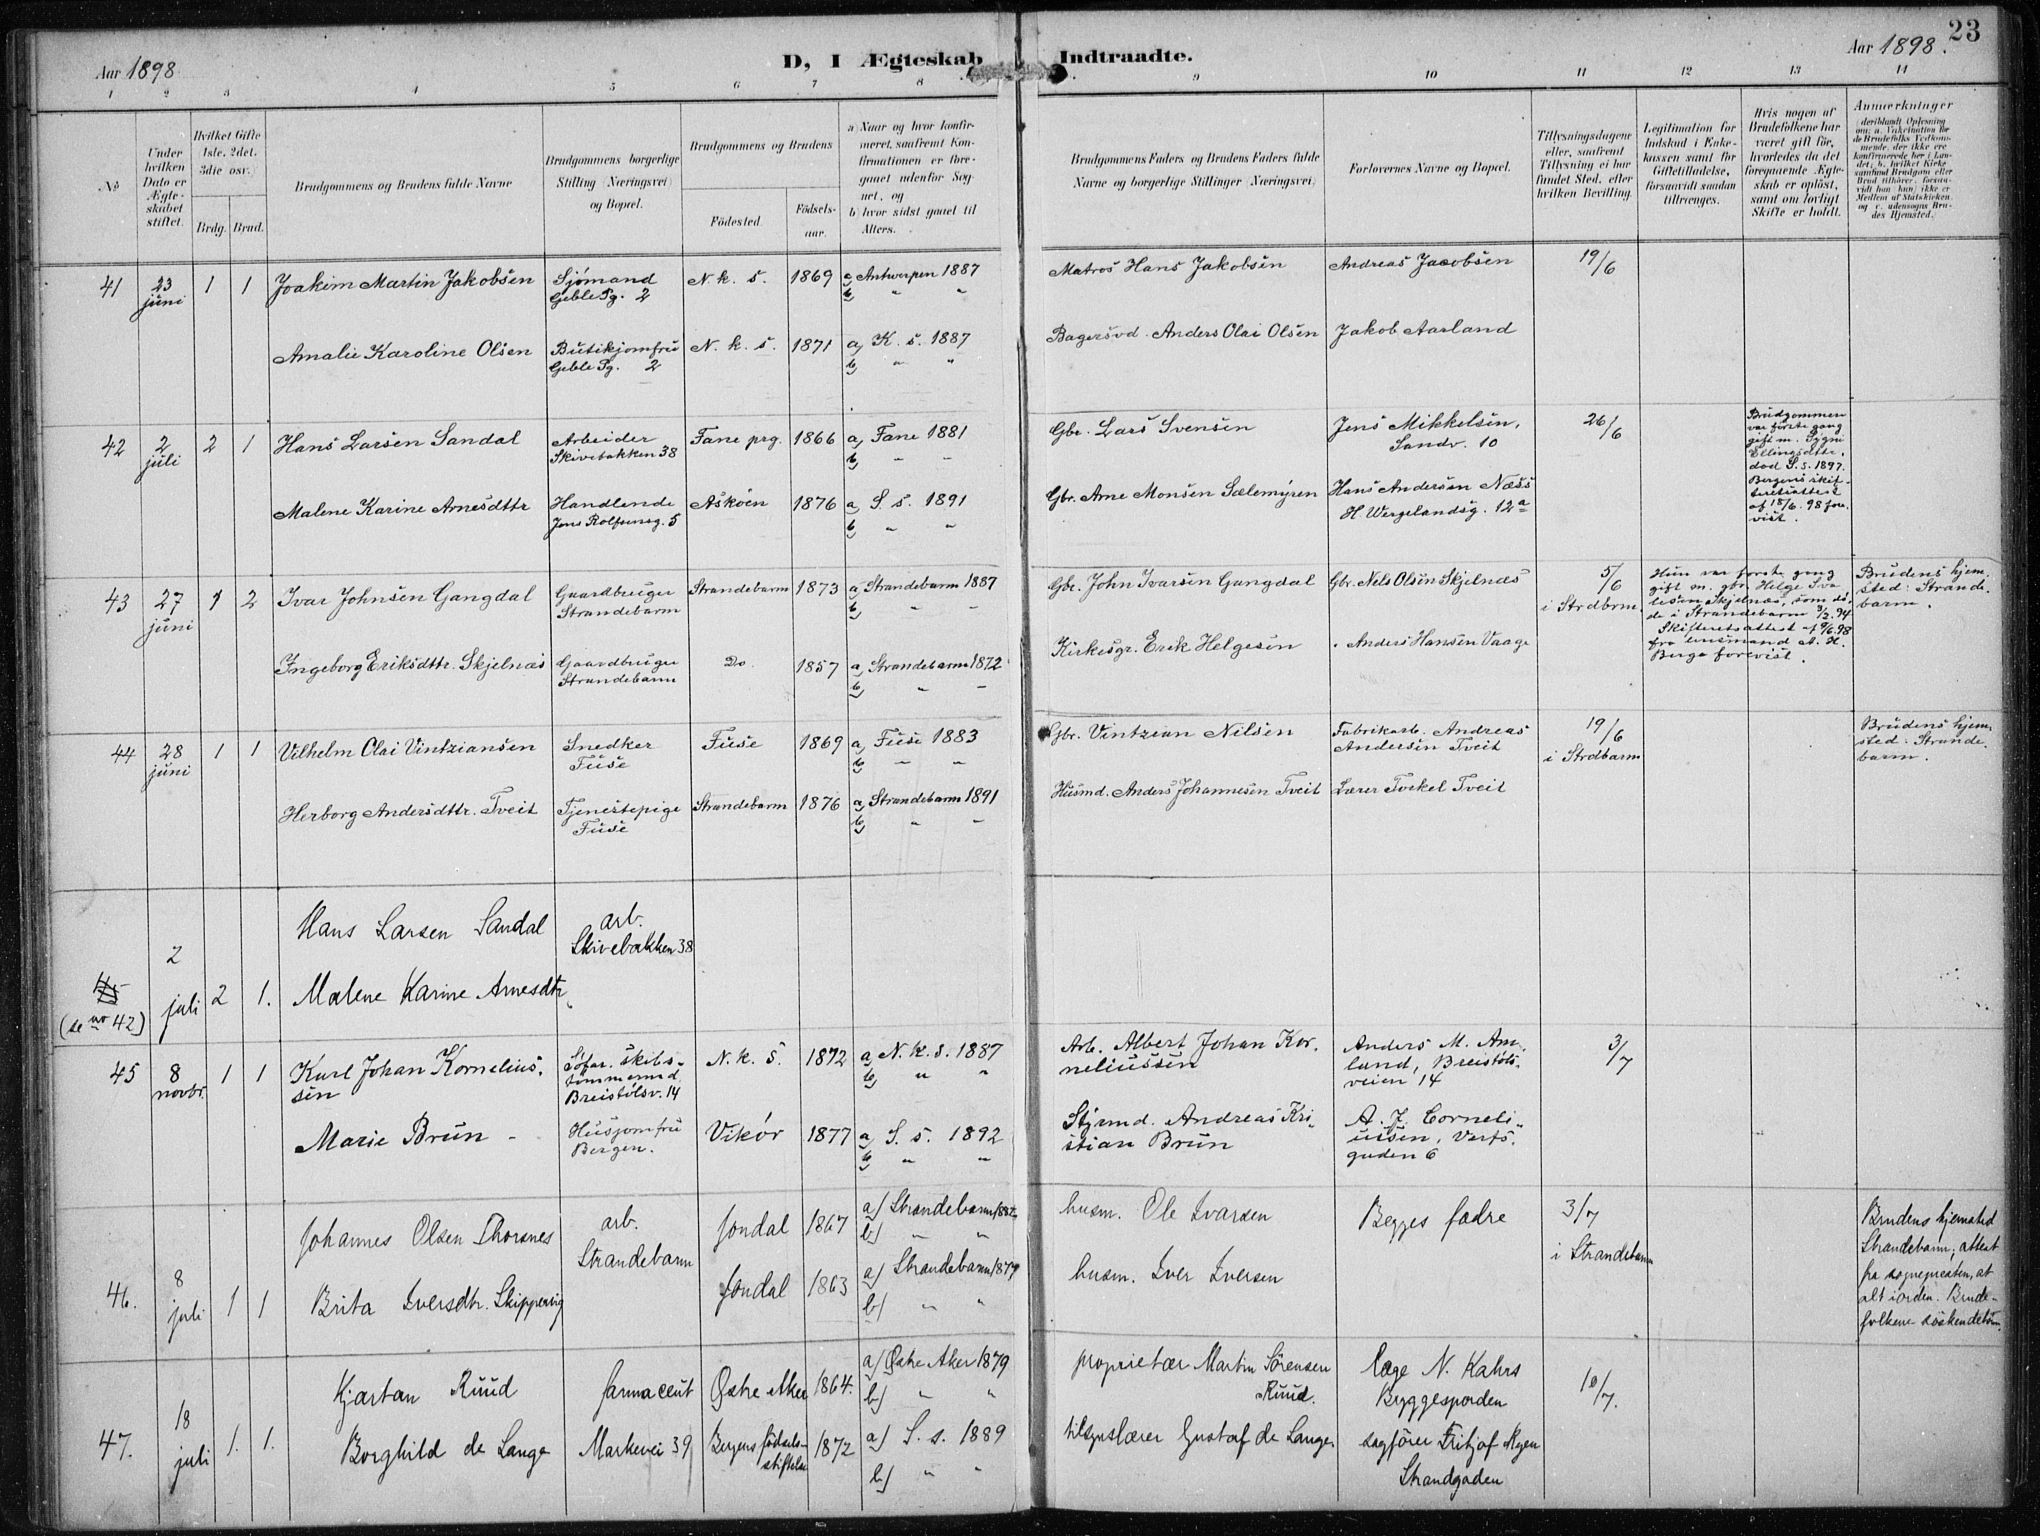 23
Aar 1898.
D, I Ægteskab Indtraadte.
Aar 1898.
1 2 3 4 5 6 7 8 9 10 11 12 13 14
No
Under hvilken Dato er Ægteskabet stiftet.
Hvilket Gifte 1ste, 2det, 3die osv.
Brdg. Brud.
Brudgommens og Brudens fulde Navne
Brudgommens borgerlige Stilling (Næringsvei) og Bopæl.
Brudgommens og Brudens
Fødested.
Fødselsaar.
a) Naar og hvor konfirmeret, saafremt Konfirmationen er foregaaet udenfor Sognet, og
b) hvor sidst gaaet til Alters.
Brudgommens Faders og Brudens Faders fulde Navne og borgerlige Stillinger (Næringsvei)
Forlovernes Navne og Bopæl.
Tillysningsdagene eller, saafremt Tillysning ei har fundet Sted, efter hvilken Bevilling.
Legitimation for Indskud i Enkekassen samt for Giftetilladelse, forsaavidt saadan tiltrænges.
Hvis nogen af Brudefolkene har været gift før, hvorledes da det foregaaende Ægteskab er opløst, samt om lovligt Skifte er holdt.
Anmærkninger
41 23 juni 1 1 Joakim Martin Jakobsen Sjømand Geble Pg. 2 N. k. s. 1869 a) Antwerpen 1887 b) " "
Matros Hans Jakobsen Andreas Jacobsen 19/6
Amalie Karoline Olsen Butikjomfru Geble Pg. 2 N. k. s. 1871 a) K. s. 1887 b) " "
Bagersvd. Anders Olai Olsen Jakob Aarland
42 2 juli 2 1 Hans Larsen Sandal Arbeider Skivebakken 38 Fane prg. 1866 a) Fane 1881 b) " "
Gbr. Lars Svensen Jens Mikkelsen, Sandv. 10 26/6
Brudgommen var første gang gift m. Sygni Ellingsdttr. død S. s. 1897. Bergens skifteretsattest af 18/6. 98 forevist.
Malene Karine Arnesdttr Handlende Jens Rolfsensg. 5 Askøen 1876 a) S. s. 1891 b) " "
Gbr. Arne Monsen Sælemyren Hans Andersen Næss H. Wergelandsg. 12a
43 27 juni 1 2 Ivar Johnsen Gangdal Gaardbruger Strandebarm Strandebarm 1873 a) Strandebarm 1887 b) " "
Gbr. John Ivarsen Gangdal Gbr. Nels Olsen Skjelnæs 5/6 i Strdbrm
Hun var første gang gift m. gbr. Helge Skjelnæs, som døde i Strandebarm 3/2.94 Skifteretsattest af 9/6.98 fra lensmand A. H. Berge forevist.
Brudens hjemsted: Strandebarm.
Ingeborg Eriksdttr. Skjelnæs Gaardbruger Strandebarm Do. 1857 a) Strandebarm 1872 b) " "
Kirkesgr. Erik Helgesen Anders Hansen Vaage
44 28 juni 1 1 Vilhelm Olai Vintziansen Snedker Fuse Fuse 1869 a) Fuse 1883 b) " "
Gbr. Vintzian Nilsen Fabrikarb. Andreas Andersen Tveit 19/6 i Strdbarm
Brudens hjemsted: Strandebarm.
Herborg Andersdttr. Tveit Tjenestepige Fuse Strandebarm 1876 a) Strandebarm 1891 b) " "
Husmd. Anders Johannesen Tveit Lærer Torkel Tveit
45 (se no 42) 2 juli 2 1. Hans Larsen Sandal arb. Skivebakken 38
Malene Karine Arnesdtr.
45 8 novbr. 1 1 Karl Johan Korneliussen Søfar. skibstømmermd. Breistølsv. 14 N. k. s. 1872 a) N. k. s. 1887 b) " "
Arb. Albert Johan Korneliussen Anders M. Amland, Breistølsveien 14 3/7
Marie Brun Husjomfru Bergen. Vikør 1877 a) S. s. 1892 b) " "
Styrmd. Andreas Kristian Brun A. J. Corneliussen, Verfsgaden 6
46. 8 juli 1 1 Johannes Olsen Thorsnes arb. Strandebarm Jondal 1867 a) Strandebarm 1882 b) " "
husm. Ole Ivarsen Begges fædre 3/7 i Strandebarm
Brudens hjemsted Strandebarm; attest fra sognepresten, at alt iorden. Brudefolkene søskendebørn.
Brita Iversdtr. Skippervig Jondal 1863 a) Strandebarm 1879 b) " "
husm. Iver Iversen
47. 18 juli 1. 1. Kjartan Ruud farmaceut Østre Aker 1864. a) Østre Aker 1879 b) " "
proprietær Martin Sørensen Ruud. læge N. Kahrs Bryggesporden 10/7.
Borghild de Lange Markevei 39 Bergens fødselsstiftelse 1872 a) S. s. 1889 b) " "
tilsynslærer Gustaf de Lange. sagfører Fritjof Strandgaden